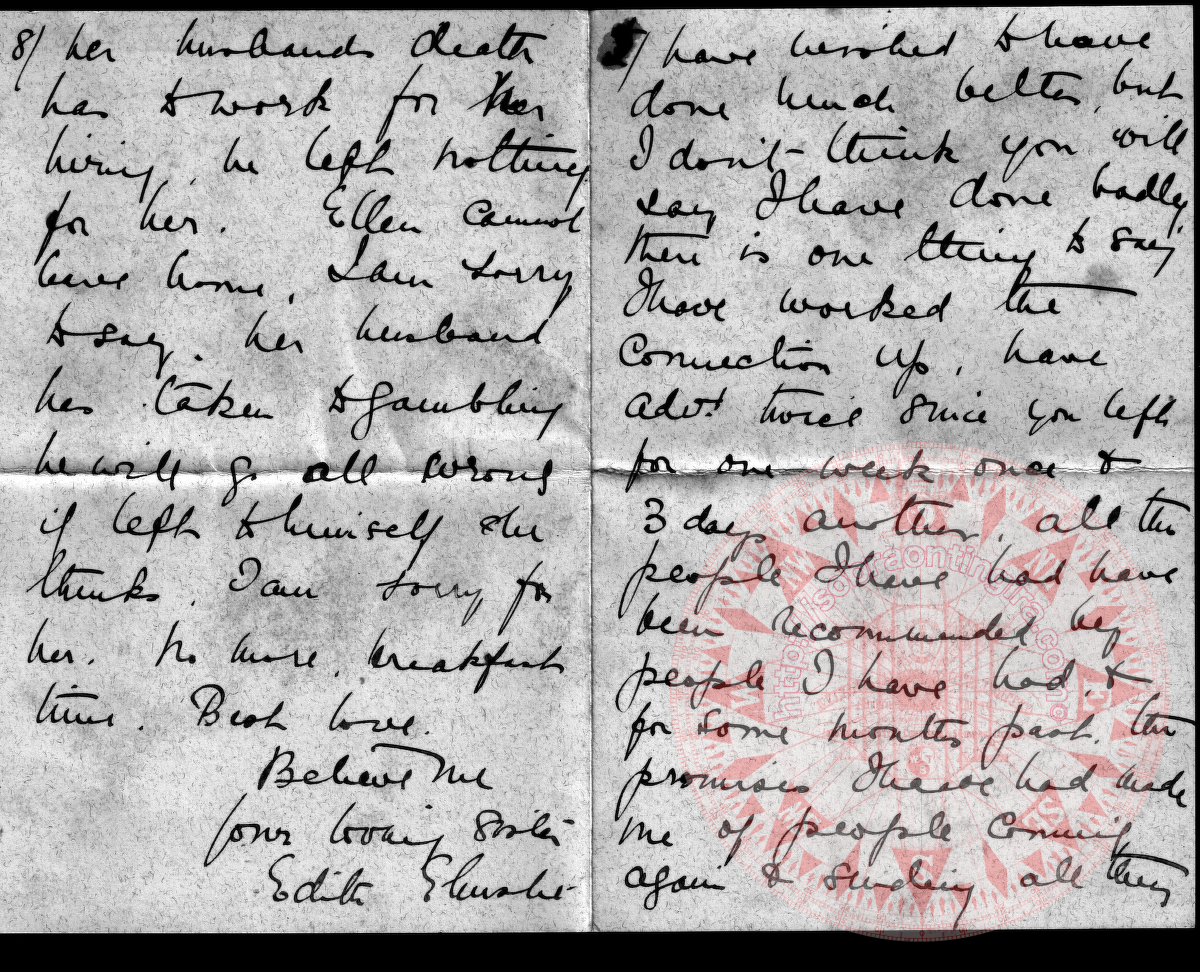 7/ have wished to have
done much better, but
I don't think you will
say I have done badly,
there is one thing to say
I have worked the
Connection up, have
advt. twice since you left
for one week once &
3 days another, all the
people I have had have
been recommended by
people I have had, &
for some months past, the
promises I have had made
me of people coming
again & sending all they
8/ her husbands death
has to work for her
living, he left nothing
for her. Ellen cannot
leave home, I am sorry
to say, her husband
has taken to gambling
he will go all wrong
if left to himself she
thinks. I am sorry for
her. No more, breakfast
time. Best love.
Believe me
your loving sister
Edith